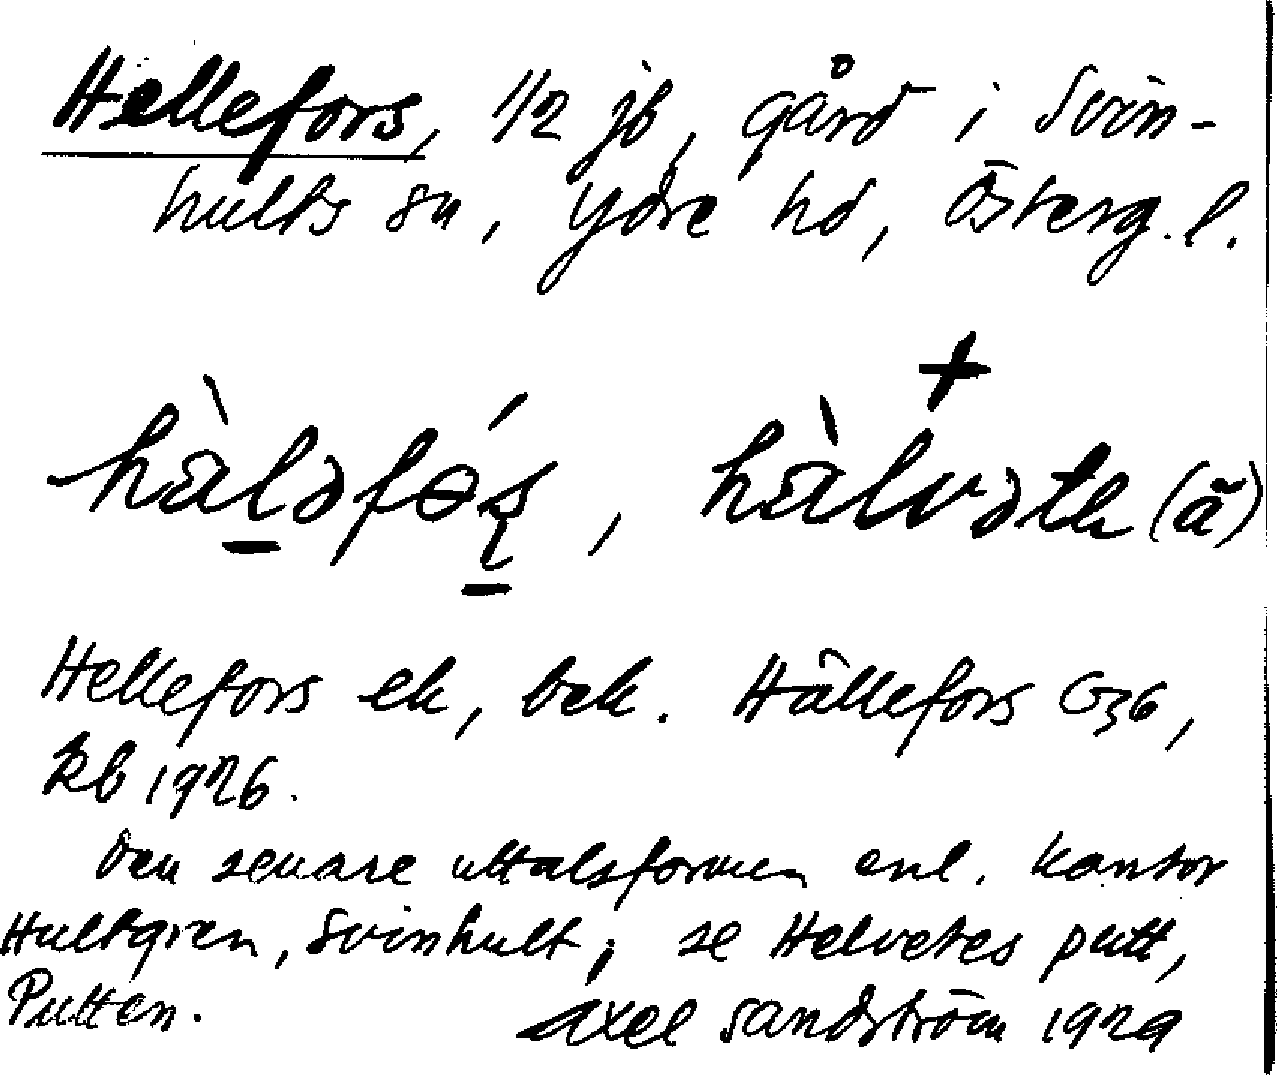 Hellefors, 1/2 jb, gård i Svin-
hults sn, Ydre hd, Österg. l.
hàləfɵ́ş, hàlvətɩ (ã)
Hellefors ek, bek. Hällefors G36,
kb 1926.
Den senare uttalsformen enl. kantor
Hultgren, Svinhult; se Helvetes putt,
Putten. Axel Sandström 1929